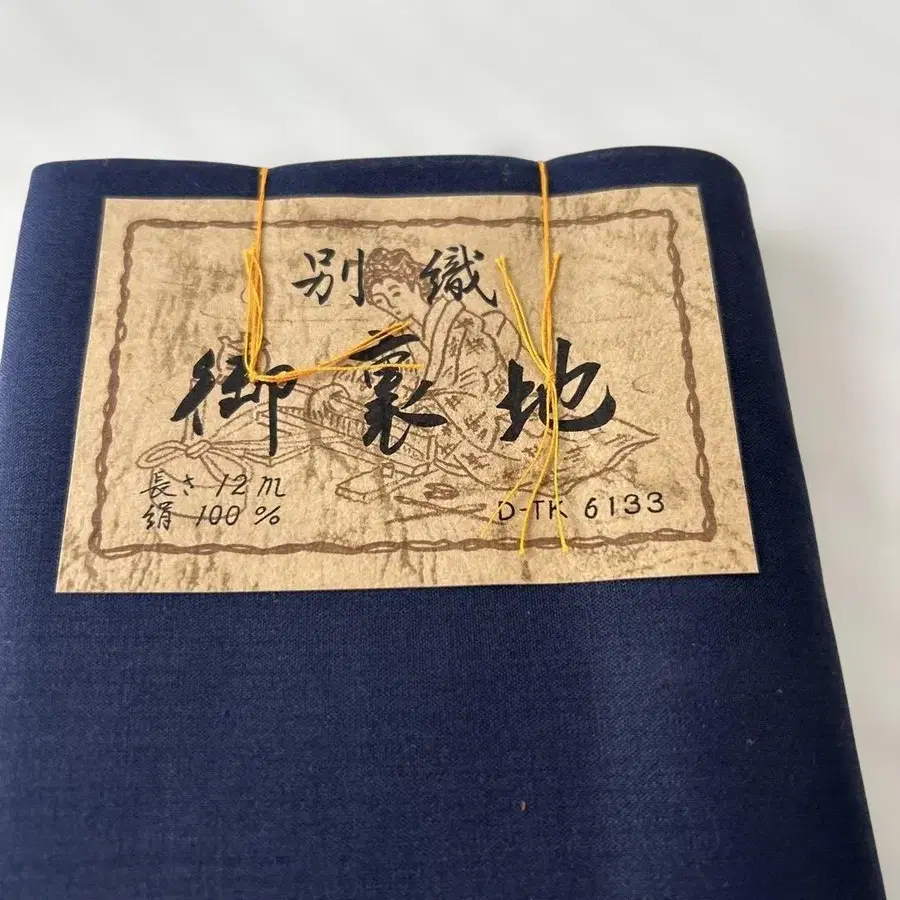 別織
御裏地
長さ 12m
絹 100%
D-TK 6133